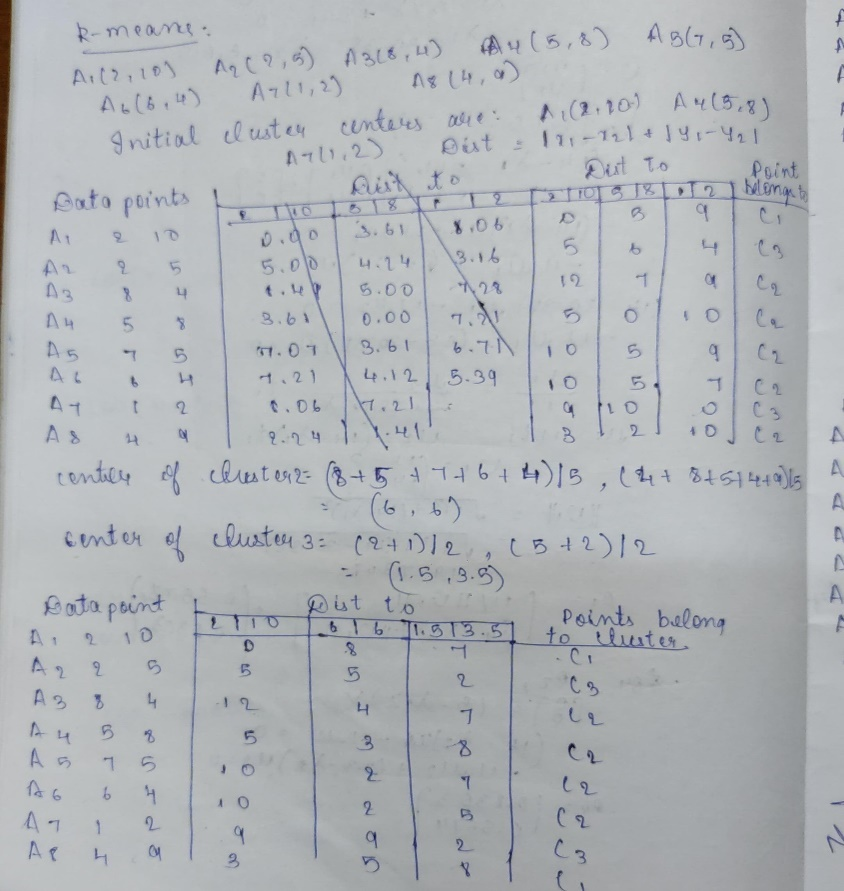 k-means:
A1(2,10) A2(2,5) A3(8,4) A4(5,8) A5(7,5)
A6(6,4) A7(1,2) A8(4,9)
Initial cluster centers are: A1(2,10) A4(5,8)
A7(1,2) Dist = |x1-x2|+|y1-y2|
Data points Dist to Dist To Point belongs to
2 10 5 8 1 2 2 10 5 8 1 2
A1 2 10 0.00 3.61 8.06 0 5 9 C1
A2 2 5 5.00 4.24 3.16 5 6 4 C3
A3 8 4 8.49 5.00 7.28 12 7 9 C2
A4 5 8 3.61 0.00 7.21 5 0 10 C2
A5 7 5 7.07 3.61 6.71 10 5 9 C2
A6 6 4 7.21 4.12 5.39 10 5 7 C2
A7 1 2 8.06 7.21 9 10 0 C3
A8 4 9 2.24 1.41 3 2 10 C2
center of cluster2= (8+5+7+6+4)/5, (4+8+5+4+9)/5
= (6,6)
center of cluster 3= (2+1)/2, (5+2)/2
= (1.5,3.5)
Data point Dist to Points belong to cluster
2 10 6 6 1.5 3.5
A1 2 10 0 8 7 C1
A2 2 5 5 5 2 C3
A3 8 4 12 4 7 C2
A4 5 8 5 3 8 C2
A5 7 5 10 2 7 C2
A6 6 4 10 2 5 C2
A7 1 2 9 9 2 C3
A8 4 9 3 5 8 C1